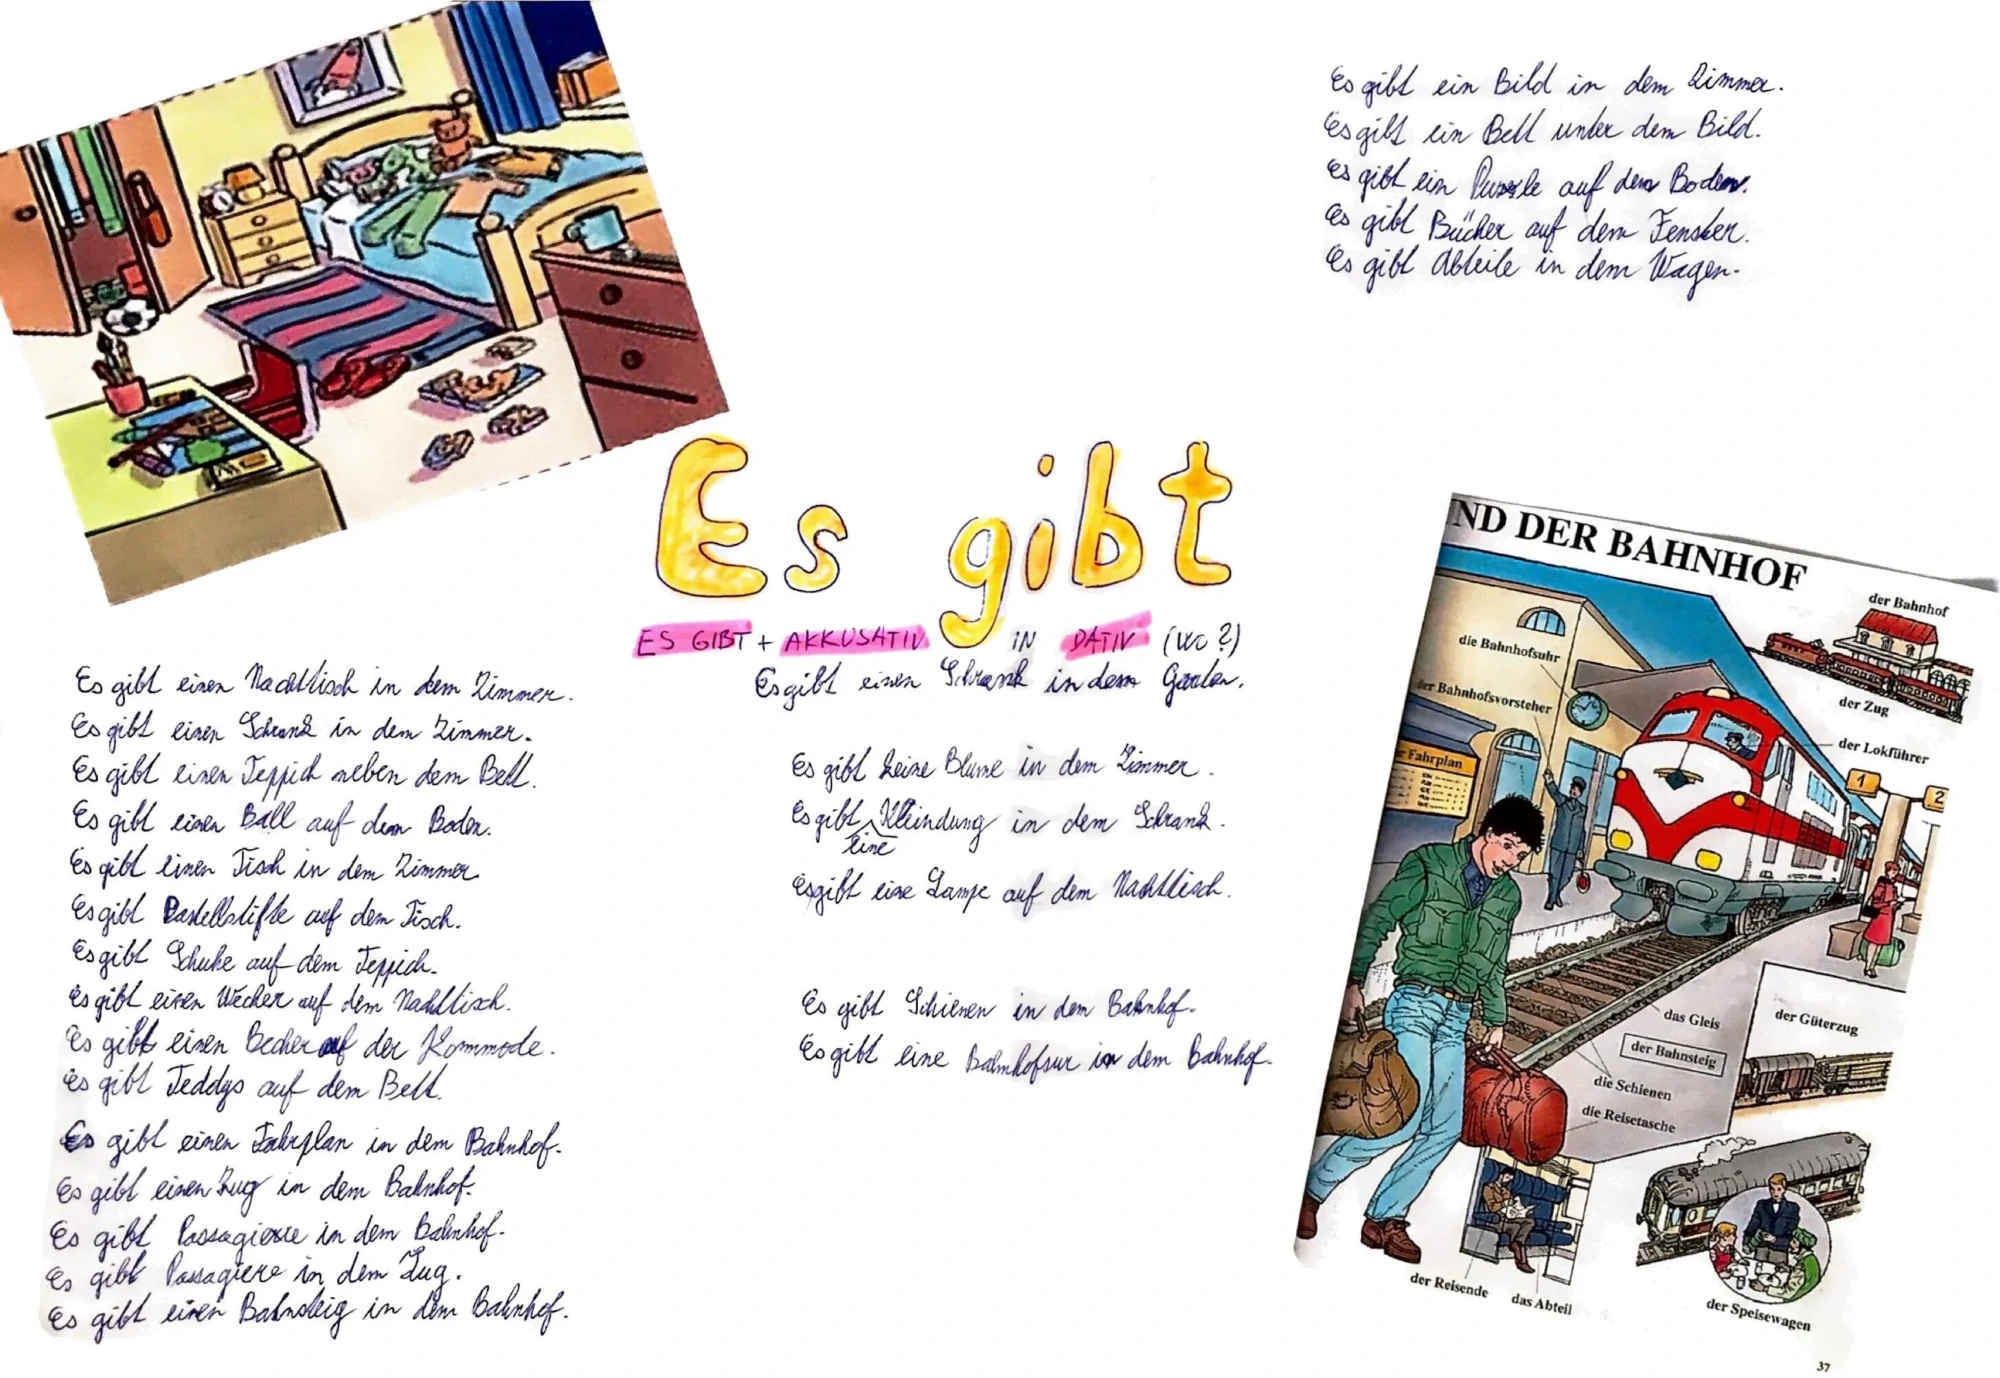 Es gibt ein Bild in dem Zimmer.
Es gibt ein Bett unter dem Bild.
Es gibt ein Puzzle auf dem Boden.
Es gibt Bücher auf dem Fenster.
Es gibt Abteile in dem Wagen.
Es gibt
ES GIBT + AKKUSATIV IN DATIV (WO?)
Es gibt einen Nachttisch in dem Zimmer.
Es gibt einen Schrank in dem Zimmer.
Es gibt einen Teppich neben dem Bett.
Es gibt einen Ball auf dem Boden.
Es gibt einen Tisch in dem Zimmer
Es gibt Pastellstifte auf dem Tisch.
Es gibt Schuhe auf dem Teppich.
Es gibt einen Wecher auf dem Nachttisch.
Es gibt einen Becher auf der Kommode.
Es gibt Teddys auf dem Bett.
Es gibt einen Fahrplan in dem Bahnhof.
Es gibt einen Zug in dem Bahnhof.
Es gibt Passagiere in dem Bahnhof.
Es gibt Passagiere in dem Zug.
Es gibt einen Bahnsteig in dem Bahnhof.
Es gibt einen Schrank in dem Garten.
Es gibt keine Blume in dem Zimmer.
Es gibt Kleindung in dem Schrank.
eine
Es gibt eine Lampe auf dem Nachttisch.
Es gibt Schienen in dem Bahnhof.
Es gibt eine Bahnhofsur in dem Bahnhof.
ND DER BAHNHOF
der Bahnhof
die Bahnhofsuhr
der Bahnhofsvorsteher
der Zug
der Lokführer
Fahrplan
1
2
das Gleis
der Güterzug
der Bahnsteig
die Schienen
die Reisetasche
der Reisende
das Abteil
der Speisewagen
37